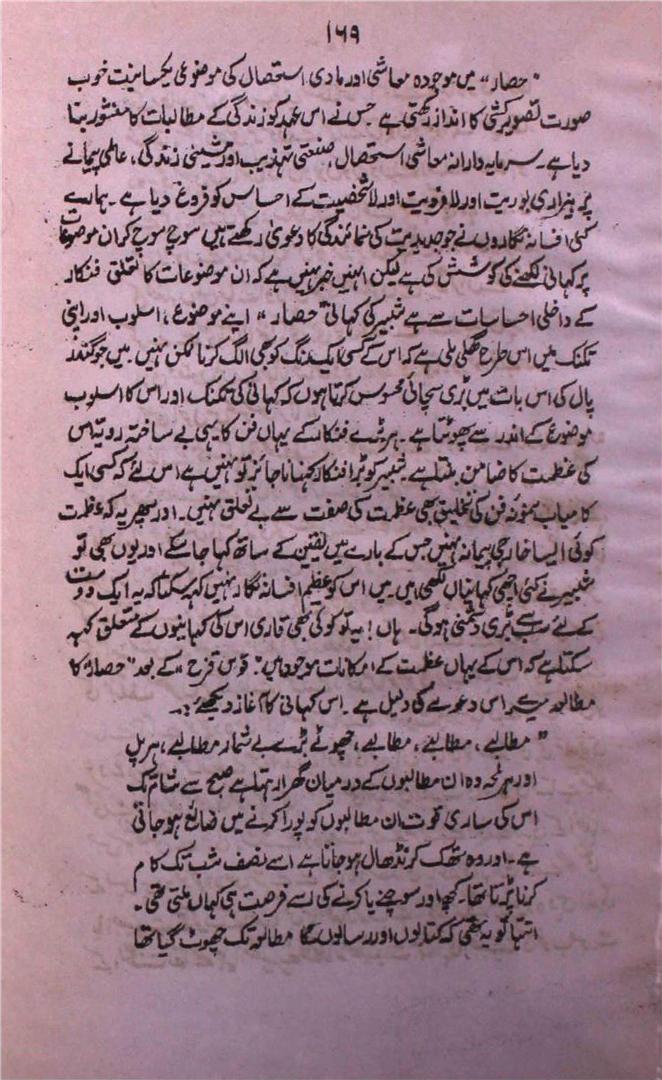 ۱۶۹
"حصار" میں موجودہ معاشی اور مادی استحصال کی موضوعی یکسانیت خوب
صورت تصویر کشی کا انداز رکھتی ہے جس نے اس عہد کو زندگی کے مطالبات کا منشور بنا
دیا ہے۔ سرمایہ دارانہ معاشی استحصال، صنعتی تہذیب اور مشینی زندگی، عالمی پیمانے
پر بیزاری بوریت اور لافردیت اور لاشخصیت کے احساس کو فروغ دیا ہے۔ ہمارے
کئی افسانہ نگاروں نے جو جدیدیت کی نمائندگی کا دعویٰ رکھتے ہیں سوچ سوچ کر ان موضوعات
پر کہانی لکھنے کی کوشش کی ہے لیکن انہیں خبر نہیں ہے کہ ان موضوعات کا تعلق فنکار
کے داخلی احساسات سے ہے شبیر کی کہانی "حصار" اپنے موضوع، اسلوب اور اپنی
تکنک میں اس طرح گھلی ملی ہے کہ اس کے کسی ایک رنگ کو بھی الگ کرنا ممکن نہیں۔ میں جوگندر
پال کی اس بات میں بڑی سچائی محسوس کرتا ہوں کہ کہانی کی تکنک اور اس کا اسلوب
موضوع کے اندر سے پھوٹتا ہے۔ ہر بڑے فنکار کے یہاں فن کا یہی بے ساختہ رویہ اس
کی عظمت کا ضامن بنتا ہے شبیر کو بڑا فنکار کہنا ناجائز تو نہیں ہے اس لئے کہ کسی ایک
کامیاب نمونۂ فن کی تخلیق بھی عظمت کی صفت سے بے تعلق نہیں۔ اور پھر یہ کہ عظمت
کوئی ایسا خارجی پیمانہ نہیں جس کے بارے میں یقین کے ساتھ کہا جا سکے اور یوں بھی تو
شبیر نے کئی اچھی کہانیاں لکھی ہیں۔ میں اس کو عظیم افسانہ نگار نہیں کہہ سکتا کہ یہ ایک دوست
کے لئے سب سے بڑی دشمنی ہوگی۔ ہاں! یہ تو کوئی بھی قاری اس کی کہانیوں کے متعلق کہہ
سکتا ہے کہ اس کے یہاں عظمت کے امکانات موجود ہیں۔ "قوس قزح" کے بعد "حصار" کا
مطالعہ میرے اس دعوے کی دلیل ہے۔ اس کہانی کا آغاز دیکھیے :۔
"مطالبے، مطالبے، مطالبے، چھوٹے بڑے بے شمار مطالبے، ہر پل
اور ہر لمحہ وہ ان مطالبوں کے درمیان گھرا رہتا ہے صبح سے شام تک
اس کی ساری قوت ان مطالبوں کو پورا کرنے میں ضائع ہو جاتی
ہے۔ اور وہ تھک کر نڈھال ہو جاتا ہے اسے نصف شب تک کام
کرنا پڑتا تھا۔ کچھ اور سوچنے یا کرنے کی اسے فرصت ہی کہاں ملتی تھی۔
انتہا تو یہ تھی کہ کتابوں اور رسالوں کا مطالعہ تک چھوٹ گیا تھا